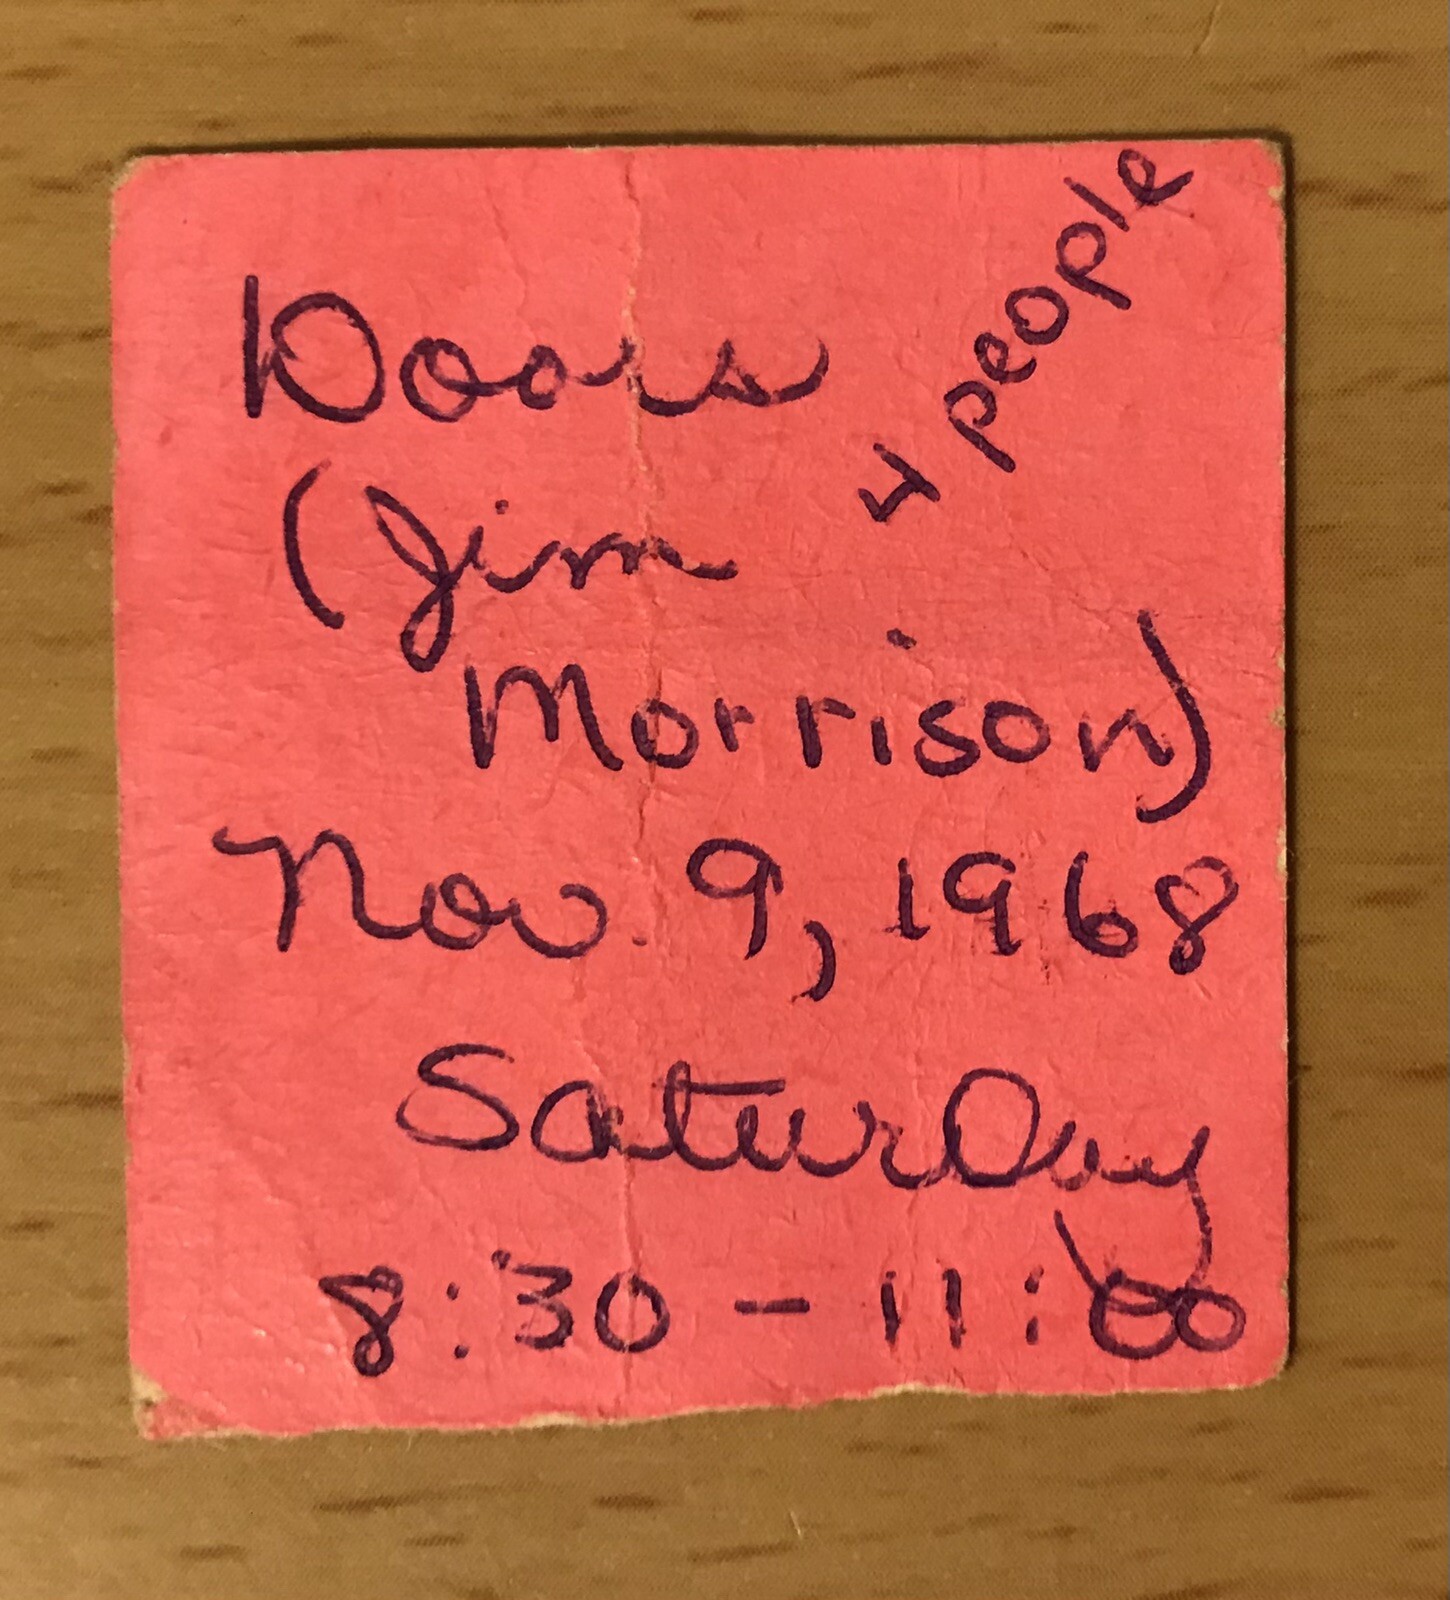 Doors
4 people
(Jim
Morrison)
Nov. 9, 1968
SaturDay
8:30 - 11:00